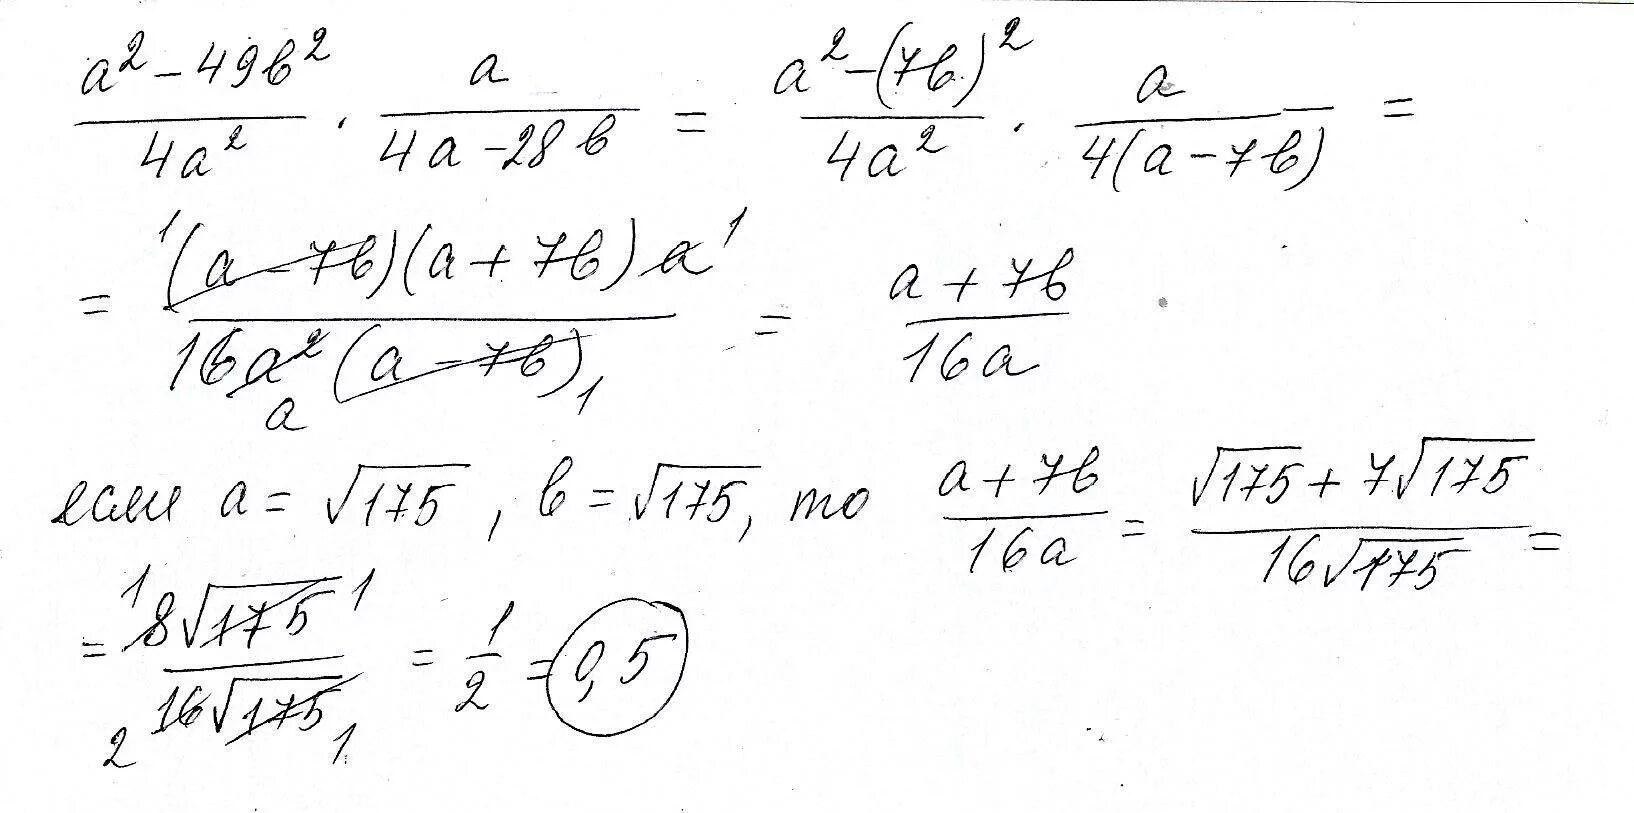 a² - 49b² / 4a² · a / 4a - 28b = a² - (7b)² / 4a² · a / 4(a - 7b) =
= ¹(a - 7b)(a + 7b) a¹ / 16a²(a - 7b) ₁ a = a + 7b / 16a
если a = √175, b = √175, то a + 7b / 16a = √175 + 7√175 / 16√175 =
= ¹8√175¹ / ₂16√175₁ = 1/2 = 0,5